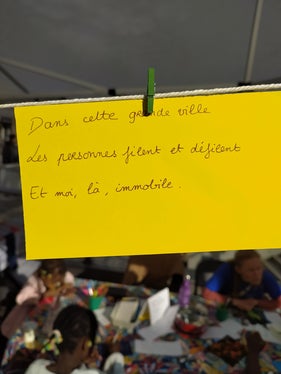 Dans cette grande ville
Les personnes filent et défilent
Et moi, là, immobile.